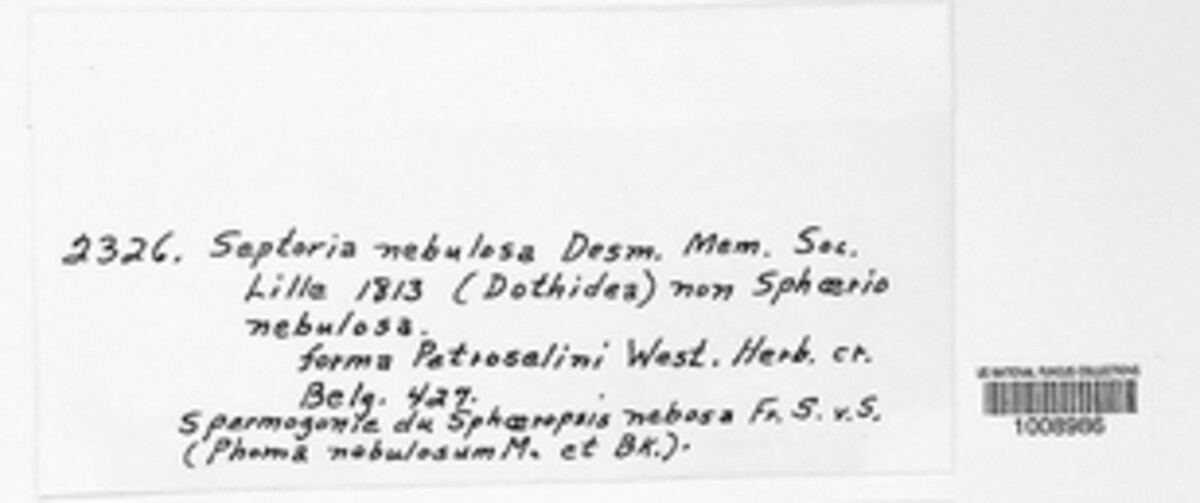 2326. Septoria nebulosa Desm. Mem. Soc.
Lille 1813 (Dothidea) non Sphærio
nebulosa.
forma Petroselini West. Herb. cr.
Belg. 427.
Spermogonie du Sphæropsis nebosa Fr. S. v. S.
(Phoma nebulosum M. et BK.).
US NATIONAL FUNGUS COLLECTIONS
1008986